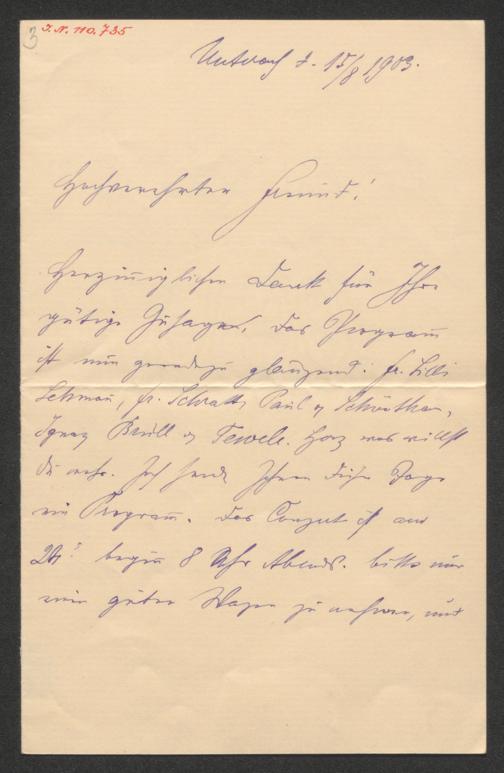 3
I.N. 110.735
Unterach d. 15/8 1903.
Hochverehrter Freund!
Herzinniglichen Dank für Ihre
gütige Zusage. Das Programm
ist nun geradezu glänzend. Fr. Lilli
Lehman, Fr. Schratt, Paul v Schönthan,
Ignaz Brüll & Tewele. Herz was willst
du mehr. Ich sende Ihnen diese Tage
ein Programm. Das Conzert ist am
beginn 8 Uhr Abends. bitte nur
guten Wagen zu nehmen, und